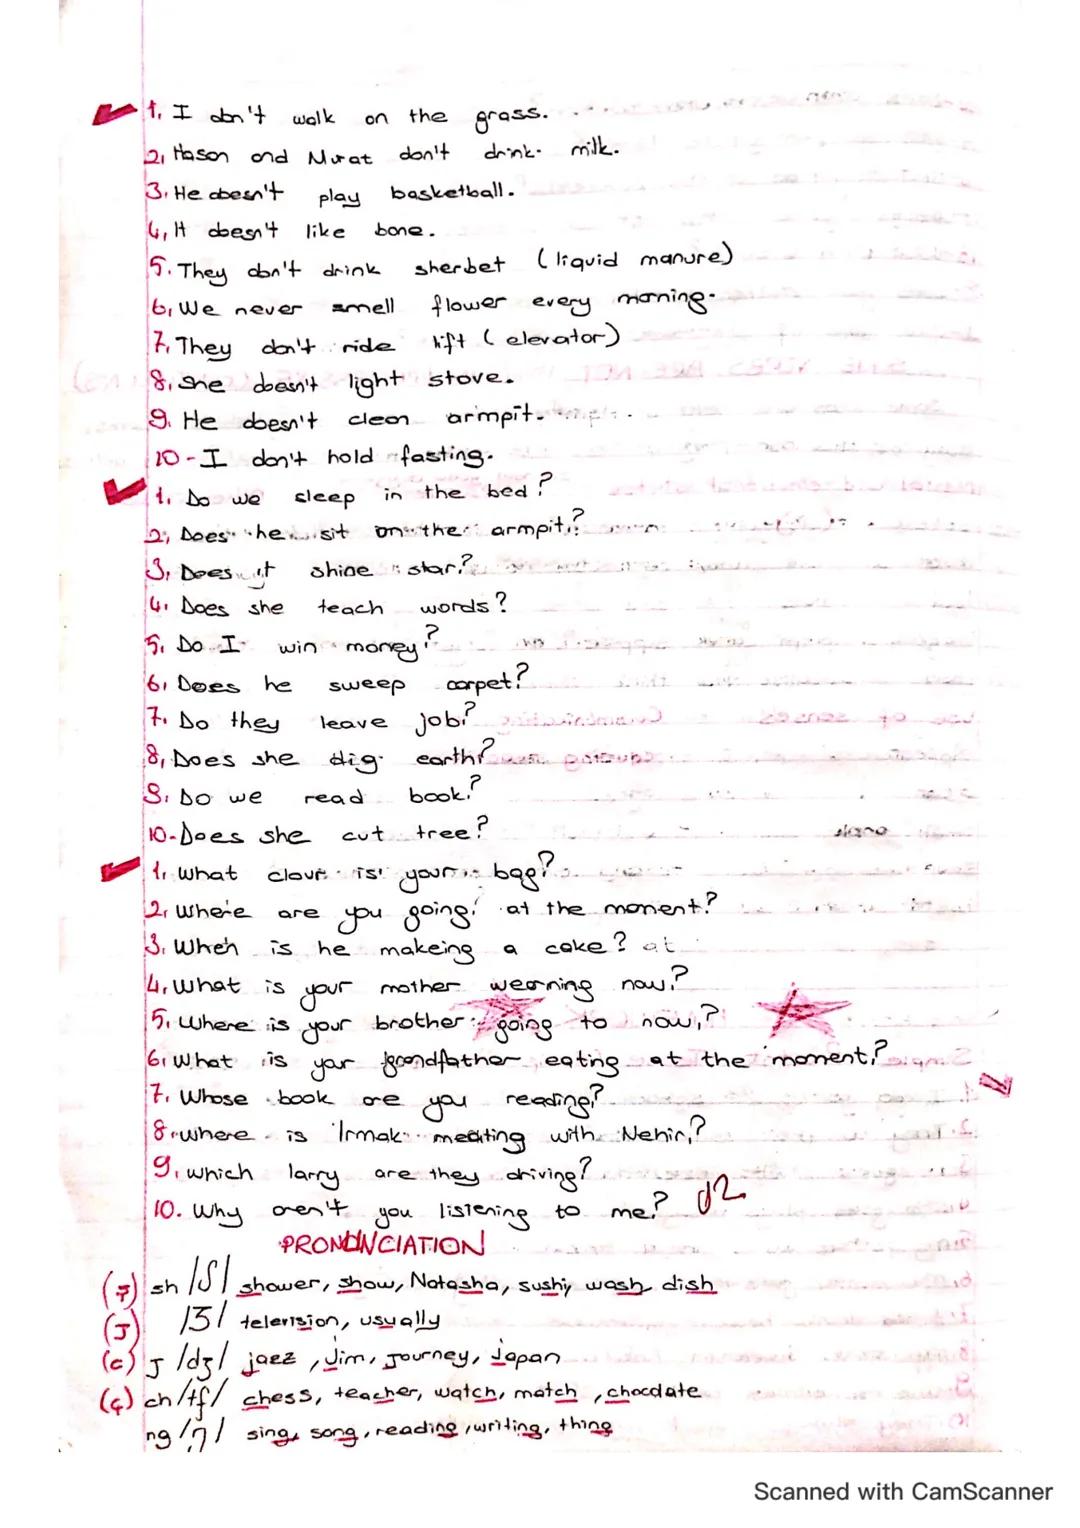 1. I don't walk on the grass.
2, Hason and Murat don't drink. milk.
3. He doesn't play basketball.
4, It doesn't like bone.
5. They don't drink sherbet (liquid manure)
6, We never smell flower every morning.
7. They don't ride lift (elevator)
8. She doesn't light stove.
9. He doesn't clean armpit.
10-I don't hold fasting.
1. Do we sleep in the bed?
2, Does he sit on the armpit?
3. Does it shine star?
4. Does she teach words?
5. Do I win money?
6, Does he sweep carpet?
7. Do they leave job?
8, Does she dig earth?
9. Do we read book?
10-Does she cut tree?
1. What clour is your bag?
2, Where are you going at the moment?
3. When is he makeing a cake? at
4, What is your mother wearning now?
5. Where is your brother going to now?
6, What is your grandfather eating at the moment?
7. Whose book are you reading?
8. Where is Irmak meating with Nehir?
9. Which larry are they driving?
10. Why aren't you listening to me?
PRONUNCIATION
(ş) sh /ʃ/ shower, show, Natasha, sushi, wash dish
(J) /ʒ/ television, usually
(c) J /dʒ/ jaez, Jim, Journey, Japan
(ç) ch /tʃ/ chess, teacher, watch, match, chocdate
ng /ŋ/ sing, song, reading, writing, thing
Scanned with CamScanner